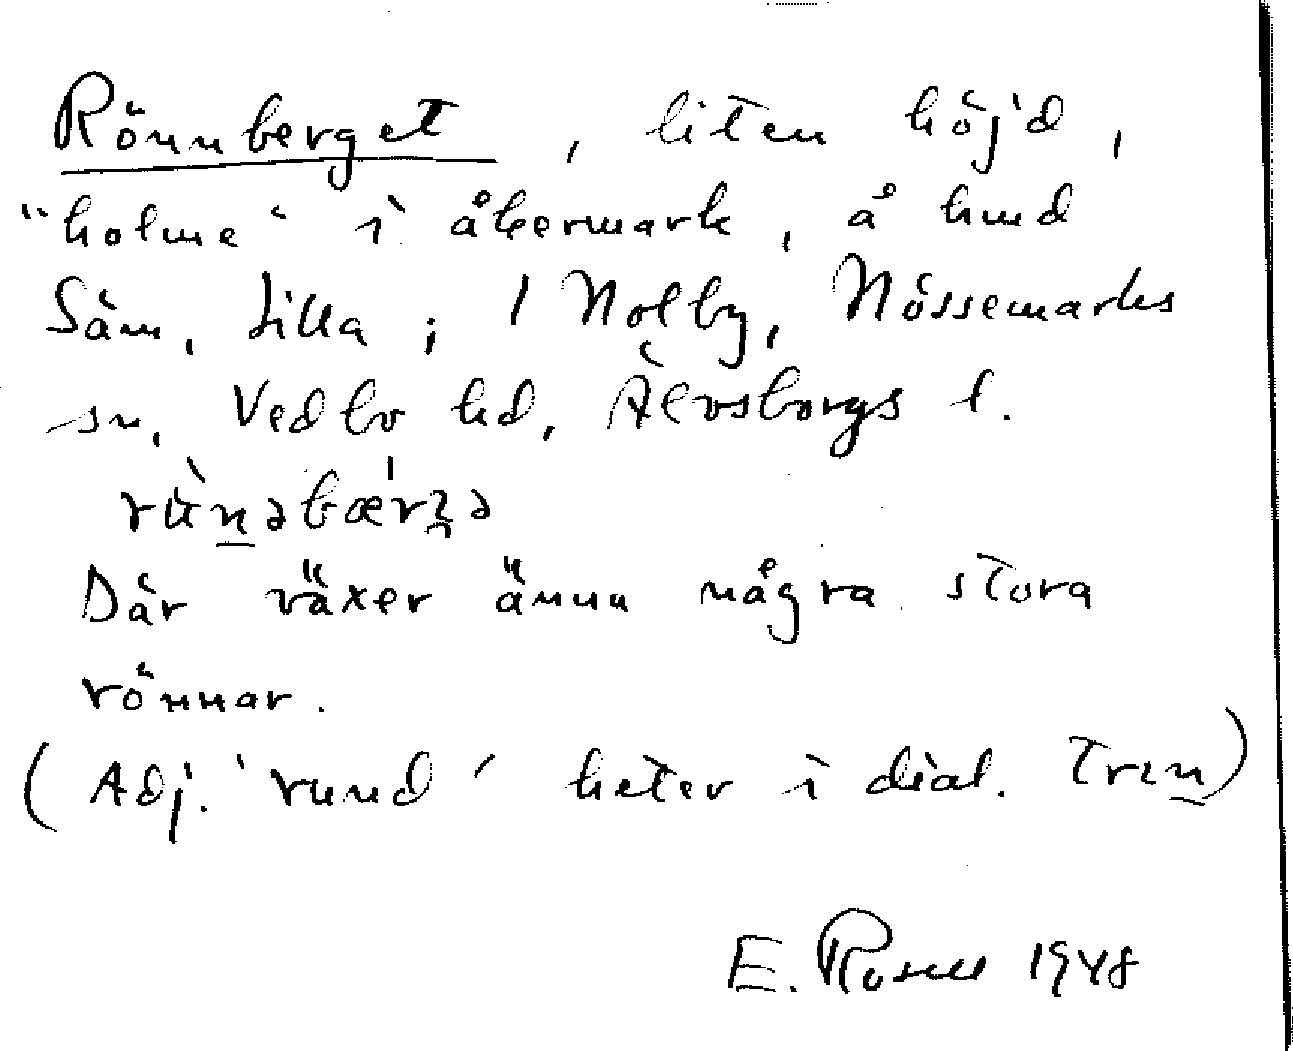 Rönnberget, liten höjd,
"holme" i åkermark, å hmd
Säm, Lilla; 1 Nolby, Nössemarks
sn, Vedbo hd, Älvsborgs l.
Där växer ännu några stora
rönnar.
(Adj. 'rund' heter i dial.
E. Rosell 1948